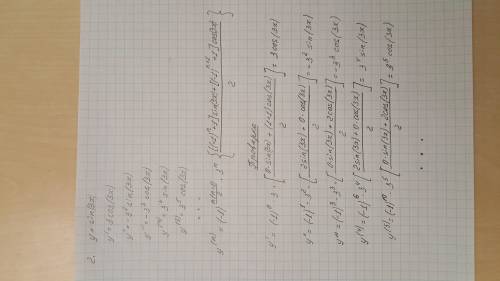 2. y = sin(3x)
y' = 3cos(3x)
y'' = -3² sin(3x)
y''' = -3³ cos(3x)
y⁽⁴⁾ = 3⁴ sin(3x)
y⁽⁵⁾ = 3⁵ cos(3x)
. . .
Проверка
y' = (-1)⁰ · 3 · [0·sin(3x) + (1+1)cos(3x) / 2] = 3cos(3x)
y'' = (-1)¹ · 3² · [2sin(3x) + 0·cos(3x) / 2] = -3² sin(3x)
y''' = (-1)³ · 3³ · [0·sin(3x) + 2cos(3x) / 2] = -3³ cos(3x)
y⁽⁴⁾ = (-1)⁶ · 3⁴ [2sin(3x) + 0·cos(3x) / 2] = 3⁴ sin(3x)
y⁽⁵⁾ = (-1)¹⁰ · 3⁵ [0·sin(3x) + 2cos(3x) / 2] = 3⁵ cos(3x)
. . .